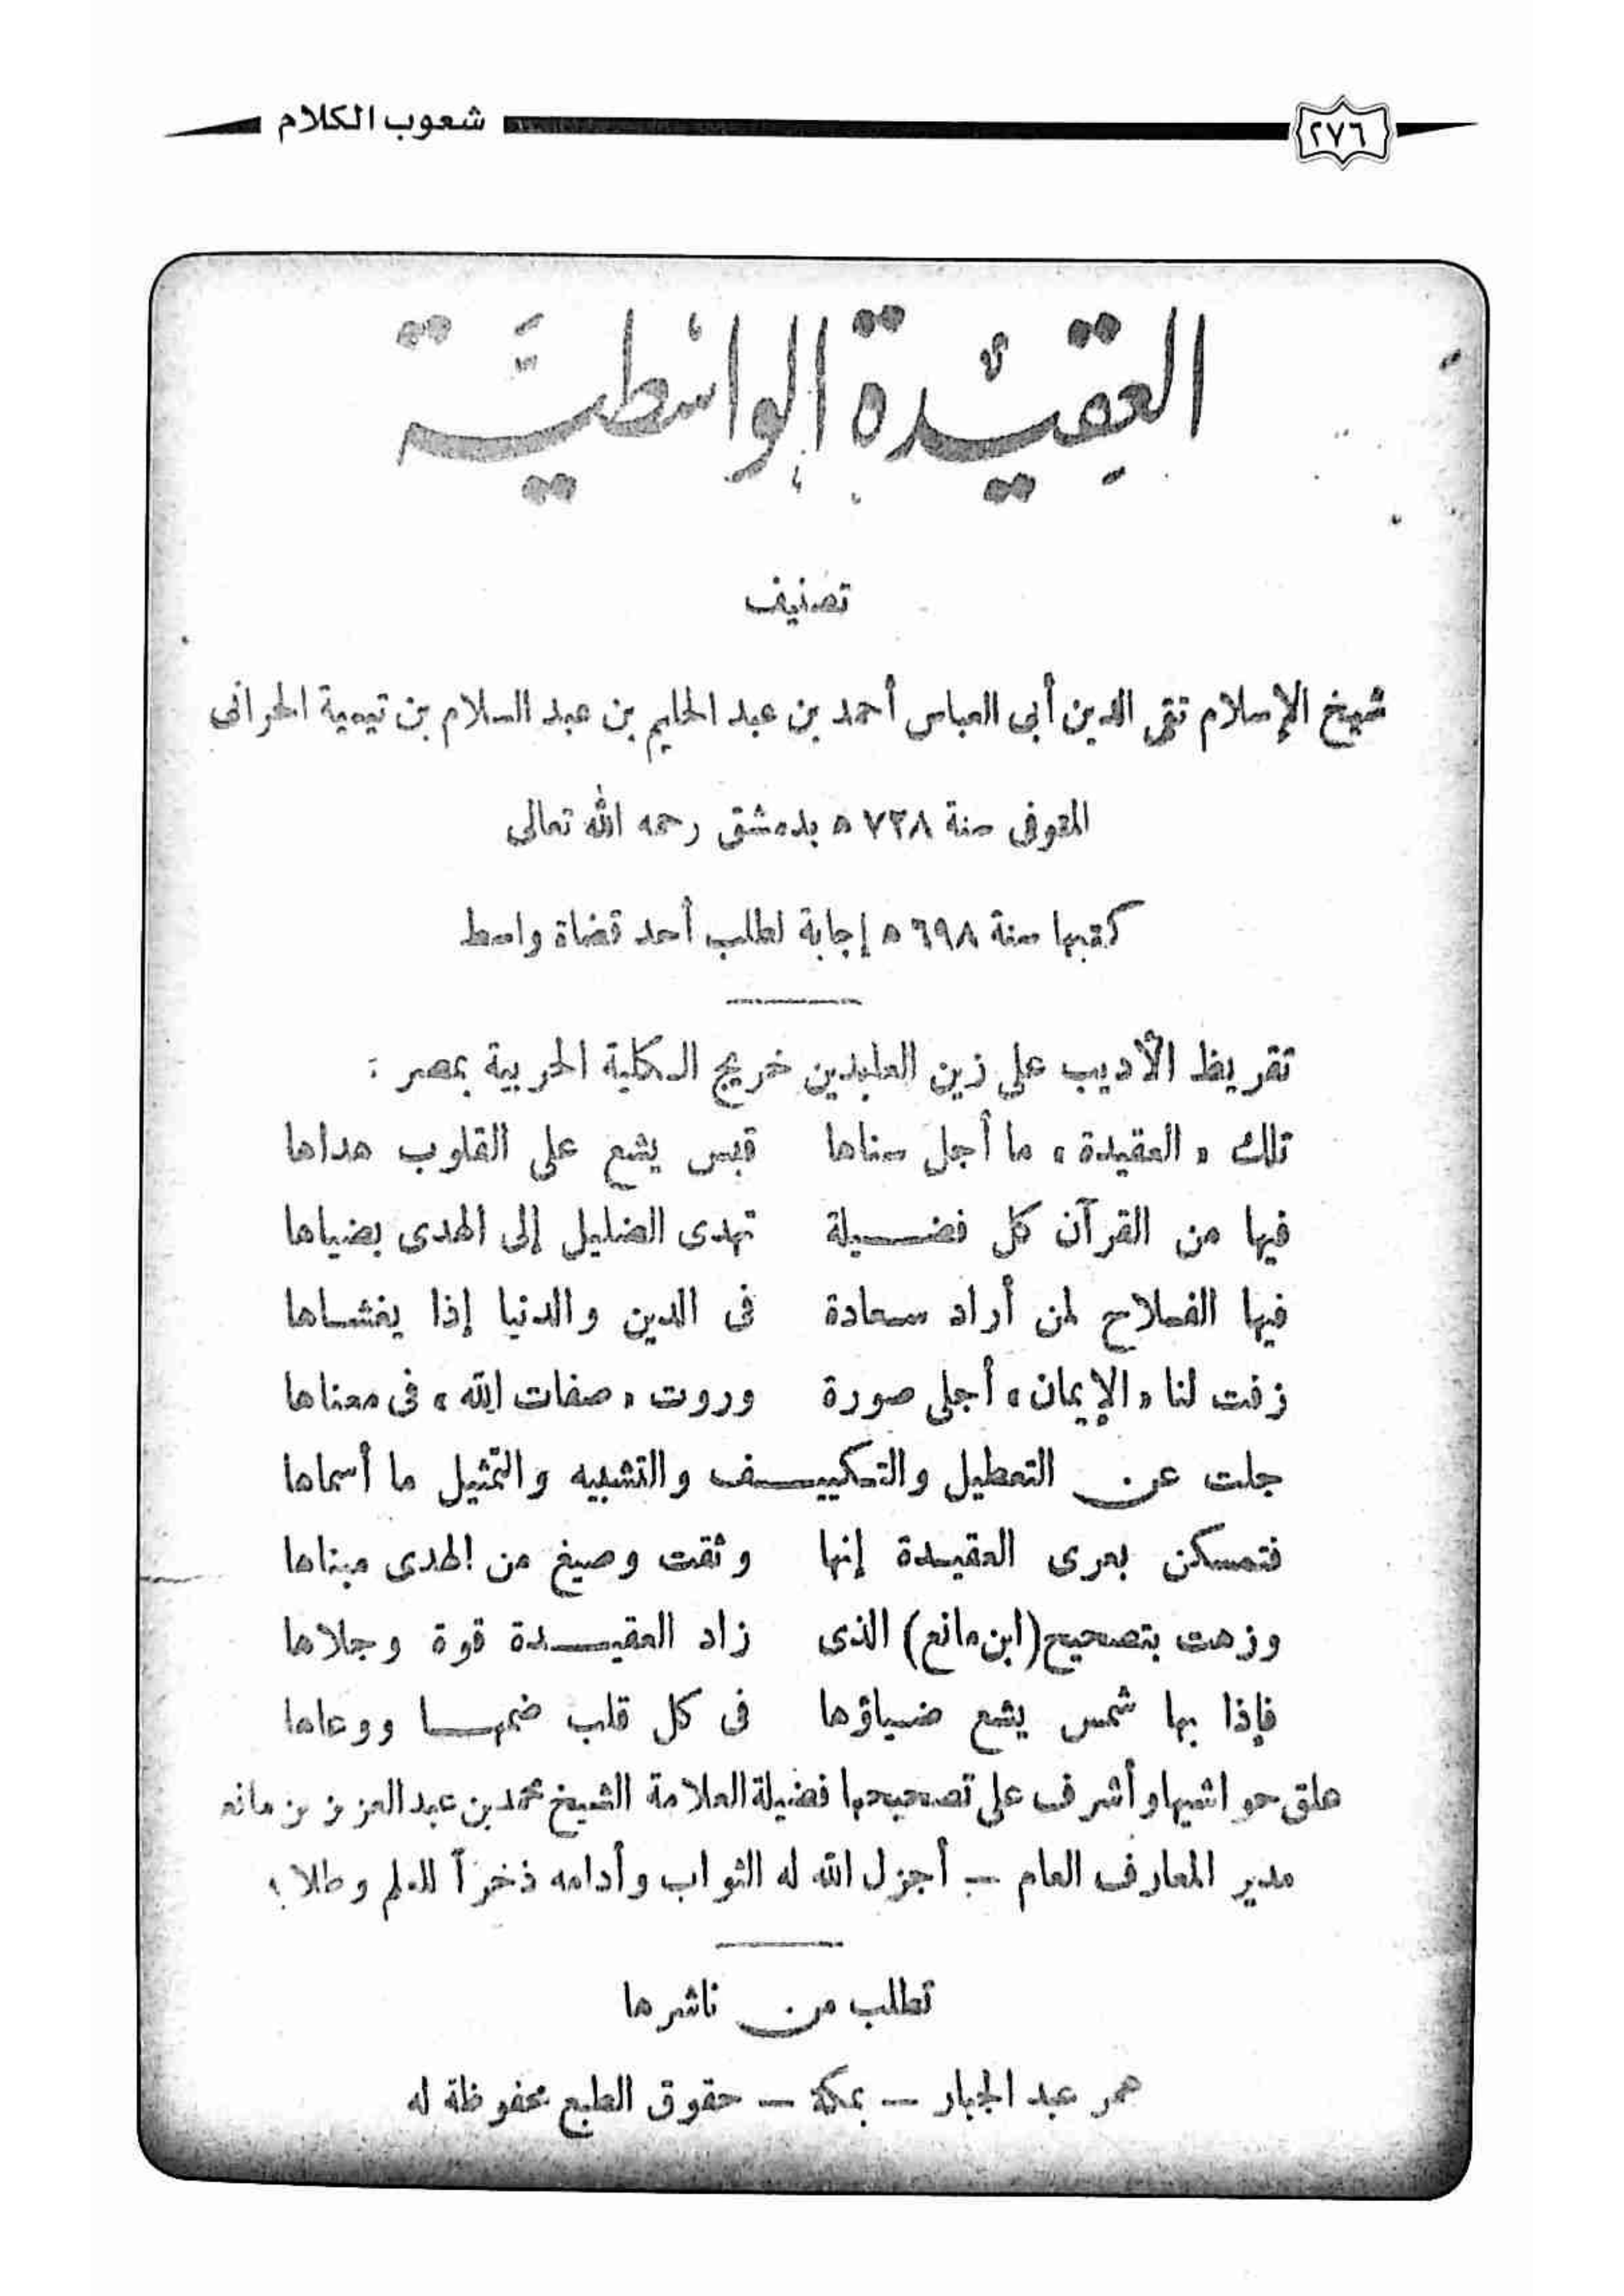 ٢٧٦ شعوب الكلام
العقيدة الواسطية
تصنيف
شيخ الإسلام تقى الدين أبى العباس أحمد بن عبد الحليم بن عبد السلام بن تيمية الحرانى
المتوفى سنة ٧٢٨ ه بدمشق رحمه الله تعالى
كتبها سنة ٦٩٨ ه إجابة لطلب أحد قضاة واسط
تقريظ الأديب على زين العابدين خريج الكلية الحربية بمصر :
تلك « العقيدة » ما أجل سناها قبس يشع على القلوب هداها
فيها من القرآن كل فضيلة تهدى الضليل إلى الهدى بضياها
فيها الفلاح لمن أراد سعادة فى الدين والدنيا إذا يغشاها
زفت لنا « الإيمان » أجلى صورة وروت « صفات الله » فى معناها
جلت عن التعطيل والتكييف والتشبيه والتمثيل ما أسماها
فتمسكن بعرى العقيدة إنها وثقت وصيغ من الهدى مبناها
وزهت بتصحيح (ابن مانع) الذى زاد العقيدة قوة وجلاها
فإذا بها شمس يشع ضياؤها فى كل قلب ضمها ووعاها
علق حواشيها وأشرف على تصحيحها فضيلة العلامة الشيخ محمد بن عبد العزيز بن مانع
مدير المعارف العام – أجزل الله له الثواب وأدامه ذخراً للعلم
تطلب من ناشرها
عمر عبد الجبار – بمكة – حقوق الطبع محفوظة له